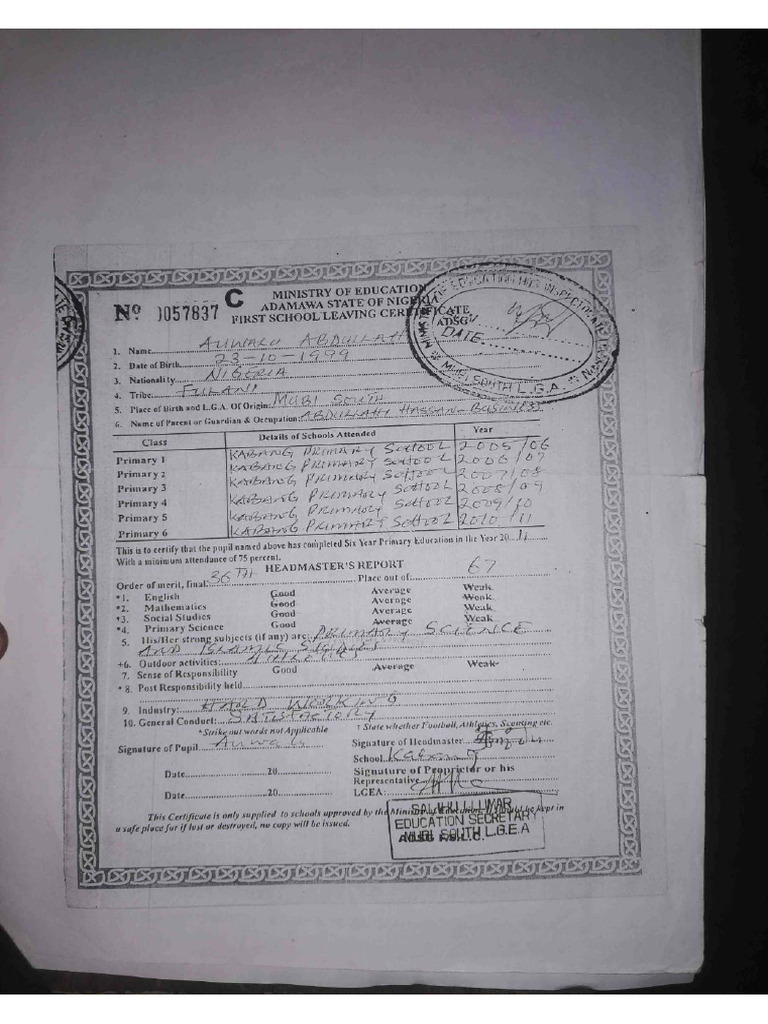 MINISTRY OF EDUCATION
Nº 0057837 C ADAMAWA STATE OF NIGERIA
FIRST SCHOOL LEAVING CERTIFICATE
MINISTRY OF EDUCATION HQ INSPECTORATE DIVISION
ADSG
DATE
MUBI SOUTH L.G.A.
1. Name AUWALU ABDULLAHI
2. Date of Birth 23-10-1999
3. Nationality NIGERIA
4. Tribe FULANI
5. Place of Birth and L.G.A. Of Origin MUBI SOUTH
6. Name of Parent or Guardian & Occupation: ABDULLAHI HASSAN - BUSINESS
Class Details of Schools Attended Year
Primary 1 KABANG PRIMARY SCHOOL 2005/06
Primary 2 KABANG PRIMARY SCHOOL 2006/07
Primary 3 KABANG PRIMARY SCHOOL 2007/08
Primary 4 KABANG PRIMARY SCHOOL 2008/09
Primary 5 KABANG PRIMARY SCHOOL 2009/10
Primary 6 KABANG PRIMARY SCHOOL 2010/11
This is to certify that the pupil named above has completed Six Year Primary Education in the Year 20 11
With a minimum attendance of 75 percent.
HEADMASTER'S REPORT
Order of merit, final: 36TH Place out of: 67
*1. English Good Average Weak
*2. Mathematics Good Average Weak
*3. Social Studies Good Average Weak
*4. Primary Science Good Average Weak
5. His/Her strong subjects (if any) are: PRIMARY SCIENCE
AND ISLAMIC STUDIES
+6. Outdoor activities: ATHLETICS
7. Sense of Responsibility Good Average Weak
* 8. Post Responsibility held
9. Industry: HARD WORKING
10. General Conduct: SATISFACTORY
*Strike out words not Applicable † State whether Football, Athletics, Scouting etc.
Signature of Pupil Auwalu Signature of Headmaster
School Kabang
Date 20 Signature of Proprietor or his
Representative
Date 20 LGEA:
This Certificate is only supplied to schools approved by the Ministry of Education. It should be kept in
a safe place for if lost or destroyed, no copy will be issued.
SALIHU I. UMAR
EDUCATION SECRETARY
MUBI SOUTH L.G.E.A